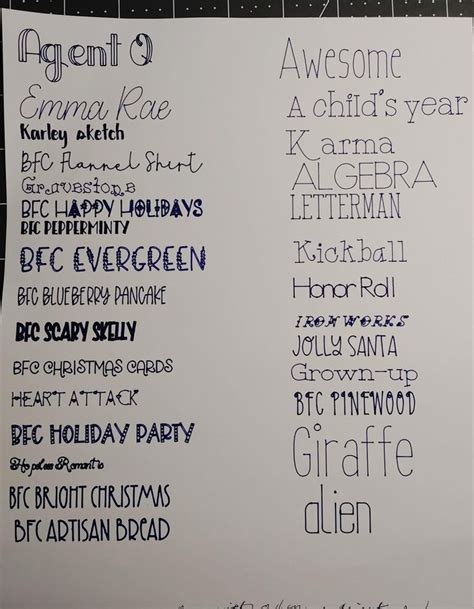 Agent Q
Emma Rae
Karley sketch
BFC Flannel Shirt
Gravestone
BFC HAPPY HOLIDAYS
BFC PEPPERMINTY
BFC EVERGREEN
BFC BLUEBERRY PANCAKE
BFC SCARY SKELLY
BFC CHRISTMAS CARDS
HEART ATTACK
BFC HOLIDAY PARTY
Hopeless Romantic
BFC BRIGHT CHRISTMAS
BFC ARTISAN BREAD
Awesome
A child's year
Karma
ALGEBRA
LETTERMAN
Kickball
Honor Roll
IRON WORKS
JOLLY SANTA
Grown-up
BFC PINEWOOD
Giraffe
alien